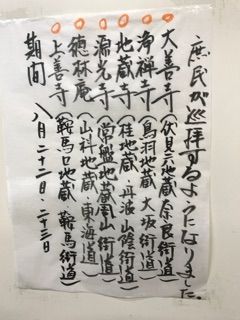 庶民が巡拝するようになりました。
大善寺(伏見六地蔵 奈良街道)
浄禅寺(鳥羽地蔵 大坂街道)
地蔵寺(桂地蔵・丹波山陰街道)
源光寺(常盤地蔵 周山街道)
徳林庵(山科地蔵・東海道)
上善寺(鞍馬口地蔵 鞍馬街道)
期間 八月二十二日・二十三日